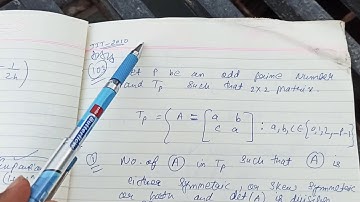 IIT-2010
103
Let P be an odd prime Number
and Tp such that 2x2 matrix.
Tp = { A = [ a b
c a ] : a, b, c ∈ {0, 1, 2, ... p-1}
① No. of (A) in Tp such that (A) is
either symmetric or skew symmetric
or both and det(A) is divisible